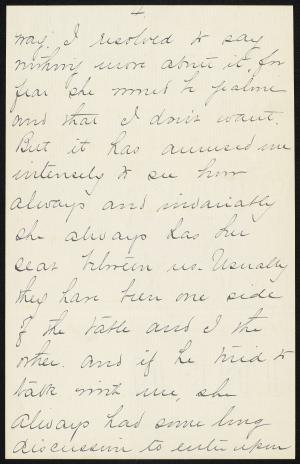 4
way. I resolved to say
nothing more about it, for
fear she would be jealous
and that I don't want.
But it has amused me
intensely to see how
always and invariably
she always has her
seat between us. Usually
they have been one side
of the table and I the
other. and if he tried to
talk with me, she
always had some long
discussion to enter upon